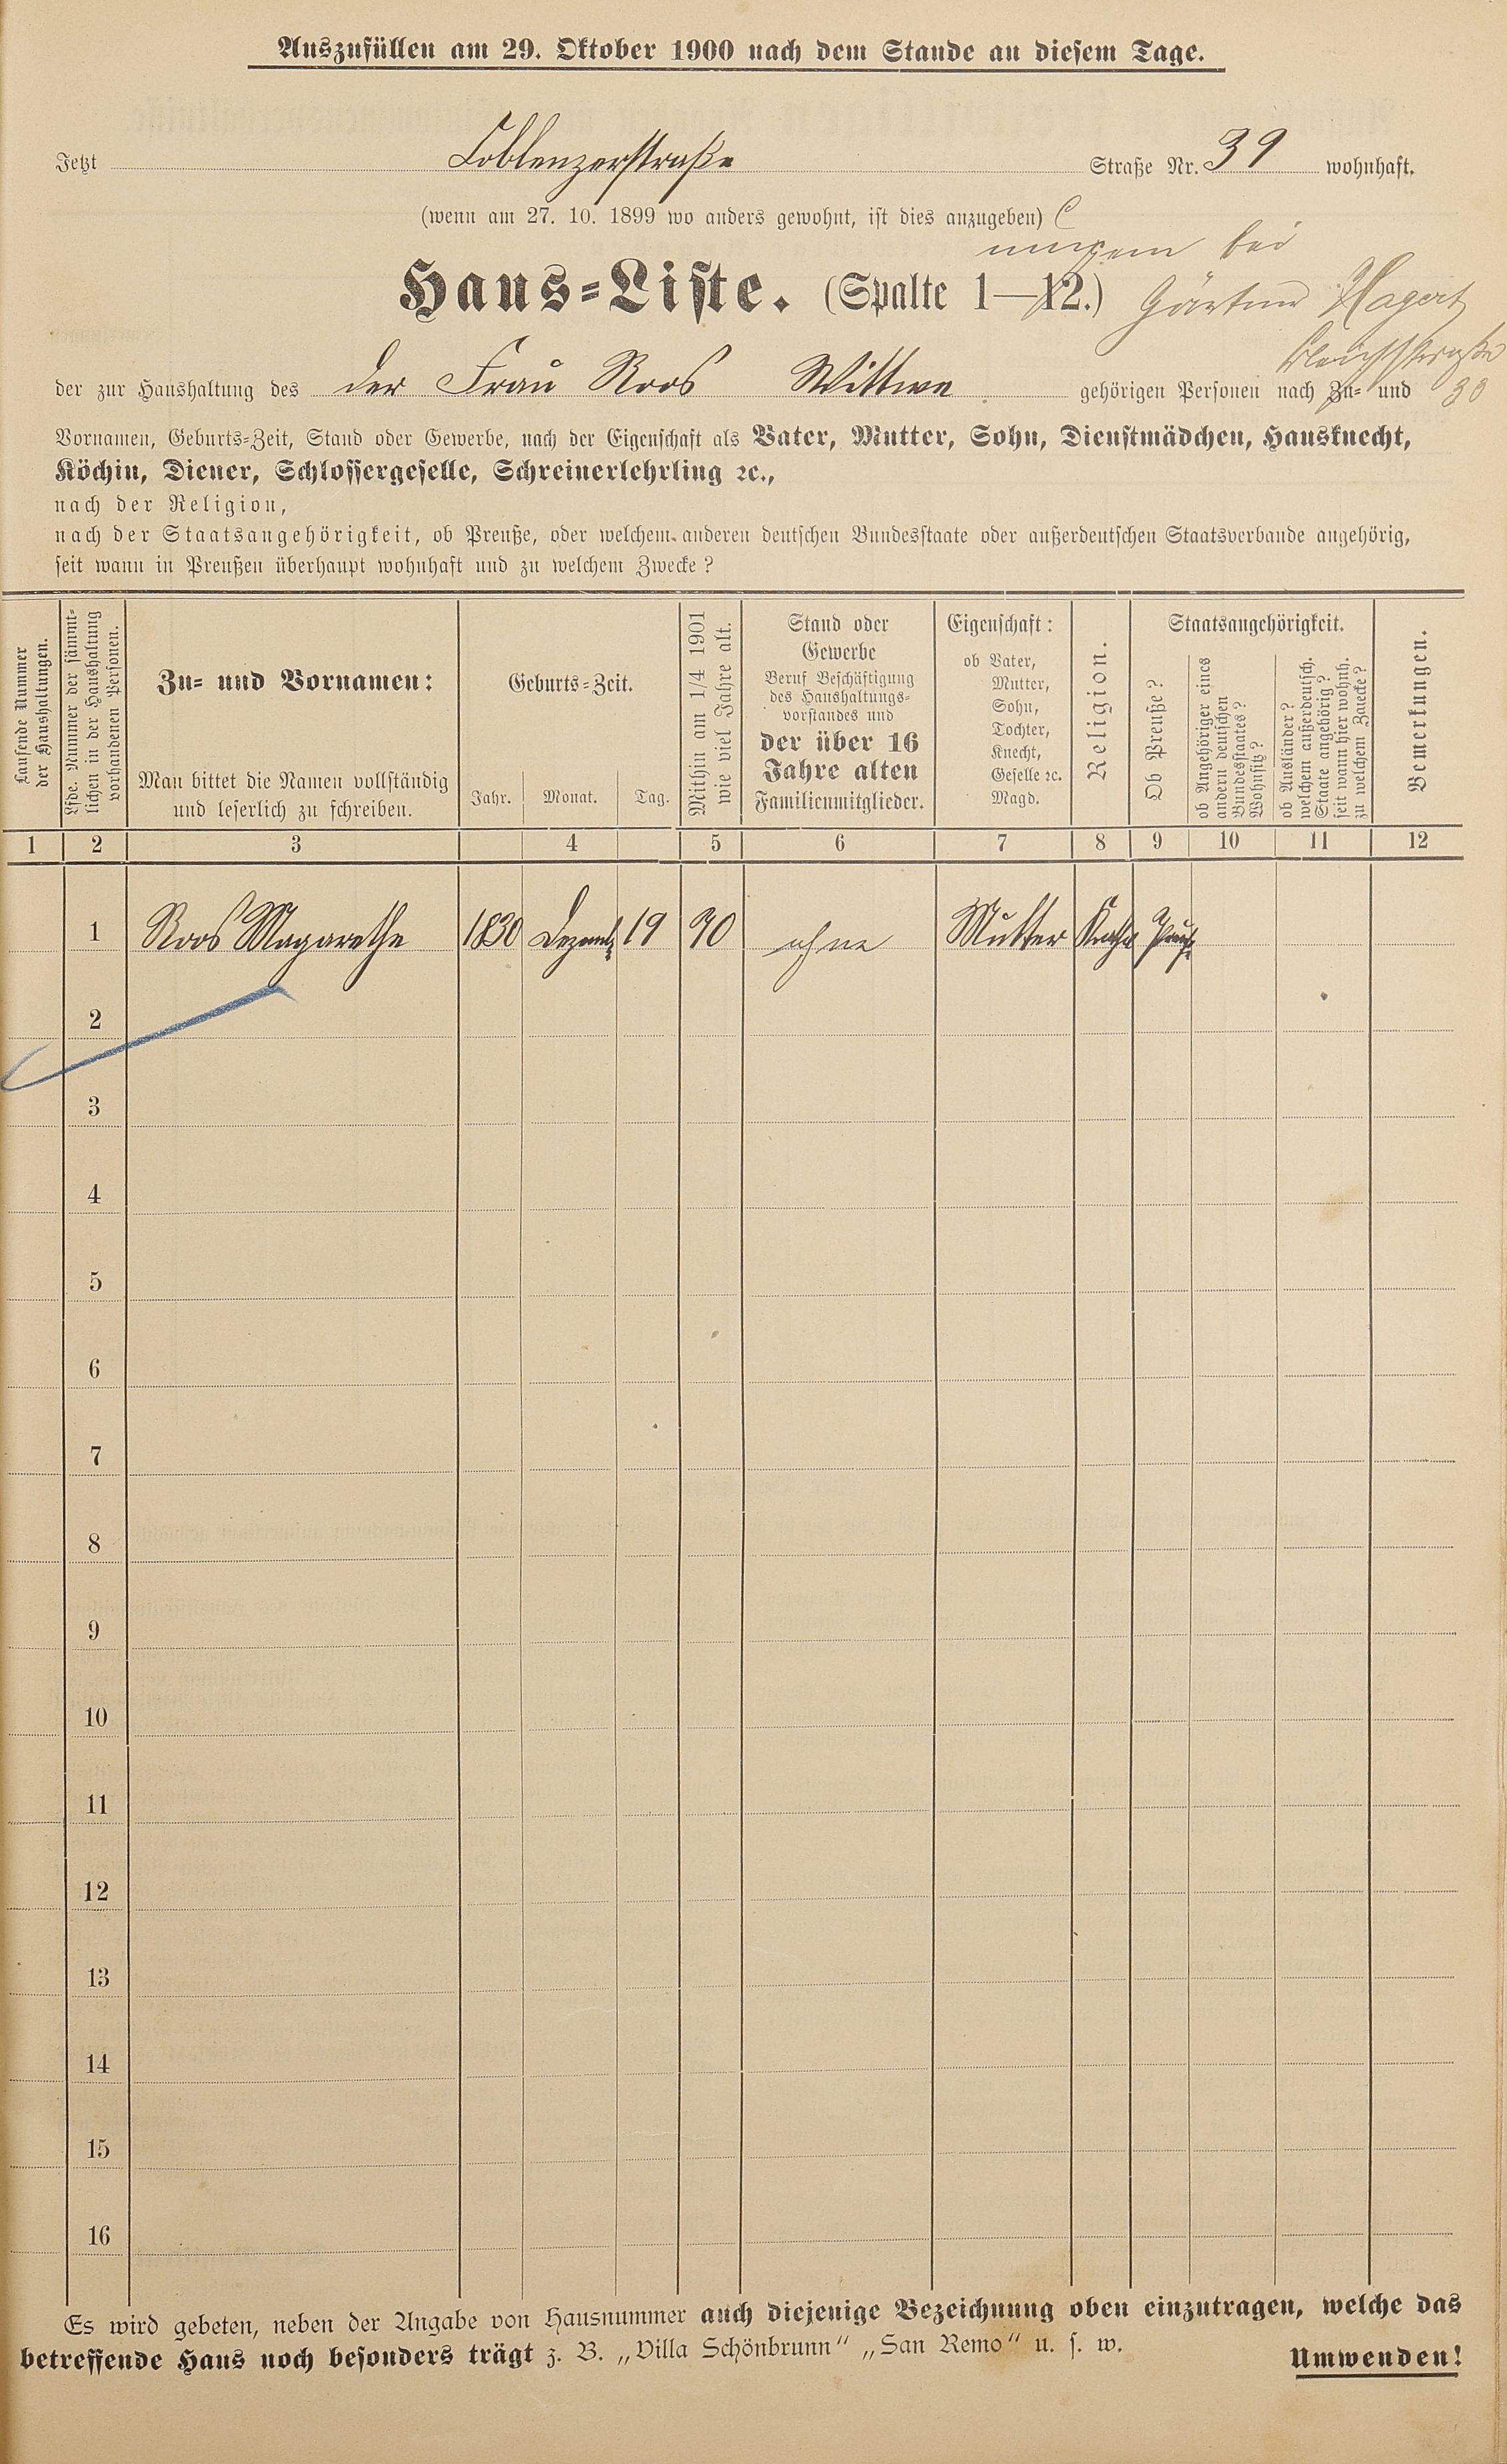 Auszufüllen am 29. Oktober 1900 nach dem Stande an diesem Tage.
Jetzt Coblenzerstraße Straße Nr. 39 wohnhaft.
(wenn am 27. 10. 1899 wo anders gewohnt, ist dies anzugeben)
bei
Haus-Liste. (Spalte 1—12.) Gärtner Hagert
der zur Haushaltung des der Frau Roos Wittwe gehörigen Personen nach Zu- und 30
Vornamen, Geburts-Zeit, Stand oder Gewerbe, nach der Eigenschaft als Vater, Mutter, Sohn, Dienstmädchen, Hausknecht,
Köchin, Diener, Schlossergeselle, Schreinerlehrling ꝛc.,
nach der Religion,
nach der Staatsangehörigkeit, ob Preuße, oder welchem anderen deutschen Bundesstaate oder außerdeutschen Staatsverbande angehörig,
seit wann in Preußen überhaupt wohnhaft und zu welchem Zwecke?
Laufende Nummer
der Haushaltungen.
Lfde. Nummer der sämmt-
lichen in der Haushaltung
vorhandenen Personen.
Zu- und Vornamen:
Man bittet die Namen vollständig
und leserlich zu schreiben.
Geburts-Zeit.
Jahr. Monat. Tag.
Mithin am 1/4 1901
wie viel Jahre alt.
Stand oder
Gewerbe
Beruf Beschäftigung
des Haushaltungs-
vorstandes und
der über 16
Jahre alten
Familienmitglieder.
Eigenschaft:
ob Vater,
Mutter,
Sohn,
Tochter,
Knecht,
Geselle ꝛc.
Magd.
Religion.
Staatsangehörigkeit.
Ob Preuße?
ob Angehöriger eines
andern deutschen
Bundesstaates?
Wohnsitz?
ob Ausländer?
welchem außerdeutsch.
Staate angehörig?
seit wann hier wohnh.
zu welchem Zwecke?
Bemerkungen.
1 2 3 4 5 6 7 8 9 10 11 12
1 Roos Magarethe 1830 Dezemb 19 70 ohne Mutter Kath Preuß
2
3
4
5
6
7
8
9
10
11
12
13
14
15
16
Es wird gebeten, neben der Angabe von Hausnummer auch diejenige Bezeichnung oben einzutragen, welche das
betreffende Haus noch besonders trägt z. B. „Villa Schönbrunn“ „San Remo“ u. s. w.
Umwenden!